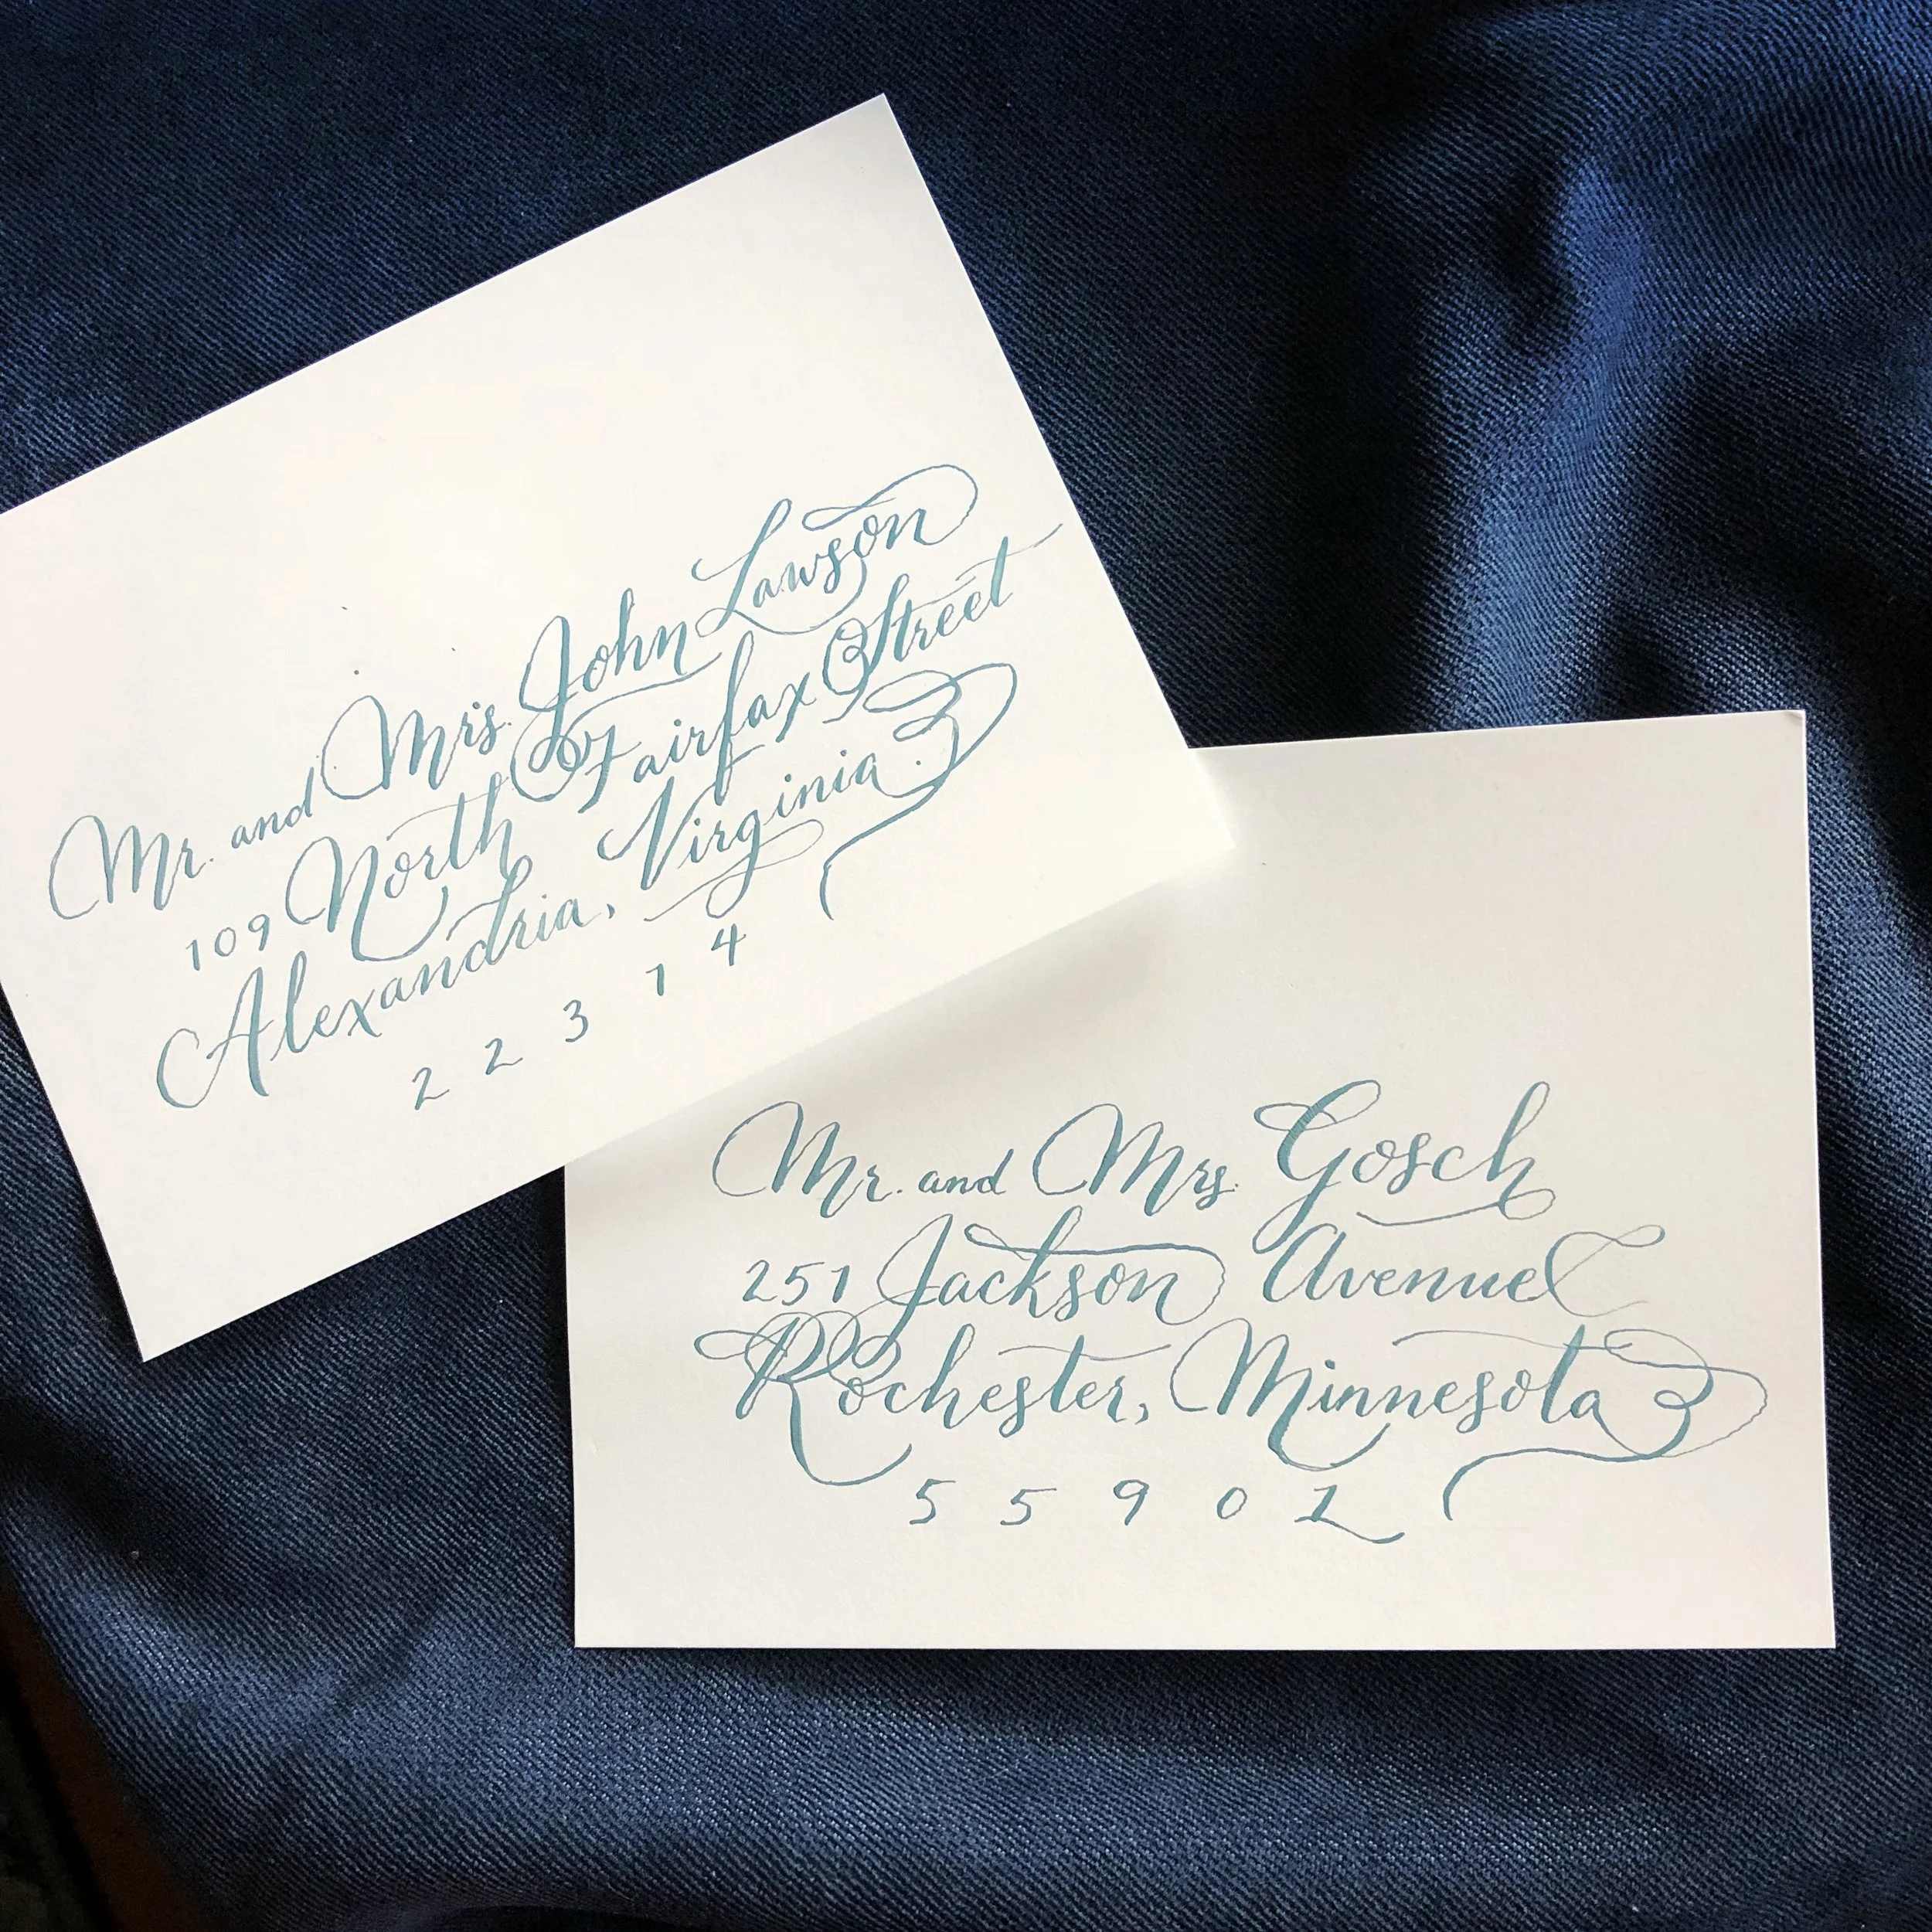 Mr. and Mrs. John Lawson
109 North Fairfax Street
Alexandria, Virginia
22314
Mr. and Mrs. Gosch
251 Jackson Avenue
Rochester, Minnesota
55902